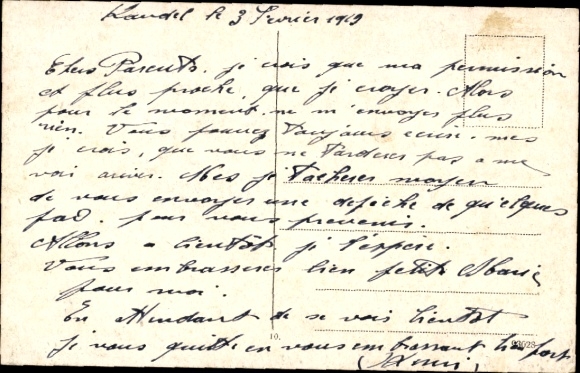 Kandel le 3 Fevrier 1919
Chers Parents. je crois que ma permission
et plus proche, que je croyer. Alors
pour le moment. ne m'envoyer plus
rien. Vous pouvez toujours ecrire. mes
je crois, que vous ne tarderes pas a me
voir ariver. Mes je tacherer moyen
de vous envoyer une depeche de quelques
par. pour vous prevenir.
Allons a bientôt je l'espere.
Vous embrasseres bien petite Marie
pour moi.
En Attendant de se voir bientot
je vous quitte en vous embrassant bien fort
10.